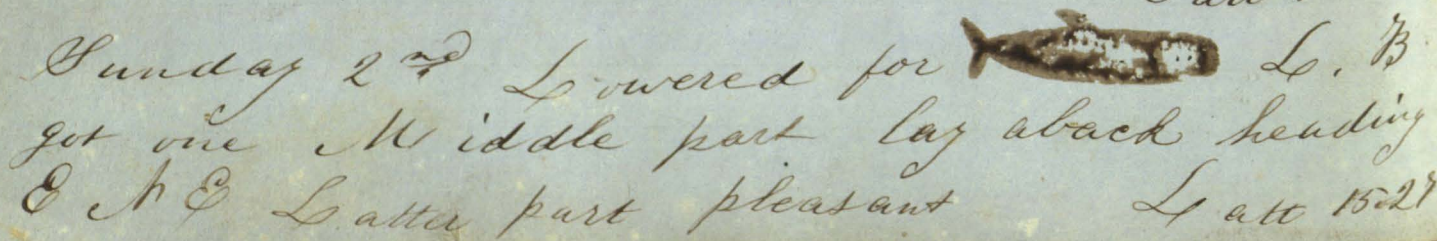 Sunday 2nd Lowered for L. B
got one Middle part lay aback heading
E N E Latter part pleasant Latt 15-27